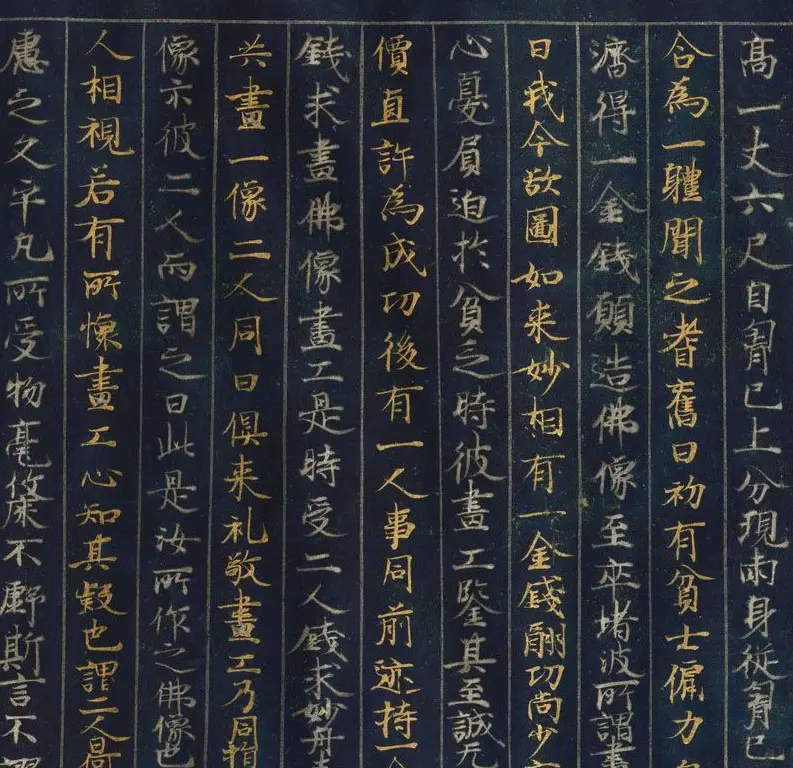 高一丈六尺自胷已上分現兩身従胷已
合為一軆聞之耆舊曰初有貧士傭力自
濟得一金錢願造佛像至卒堵波所謂畫
曰我今欲圖如来妙相有一金錢酬功尚少
心憂眉迫於貧乏時彼畫工鑒其至誠无
價直許為成功後有一人事同前迹持一金
錢求畫佛像畫工是時受二人錢求妙丹青
共畫一像二人同日俱来礼敬畫工乃同指
像示彼二人而謂之曰此是汝所作之佛像也
人相視若有所懐畫工心知其疑也謂二人曰
慮之久乎凡所受物毫氂不虧斯言不